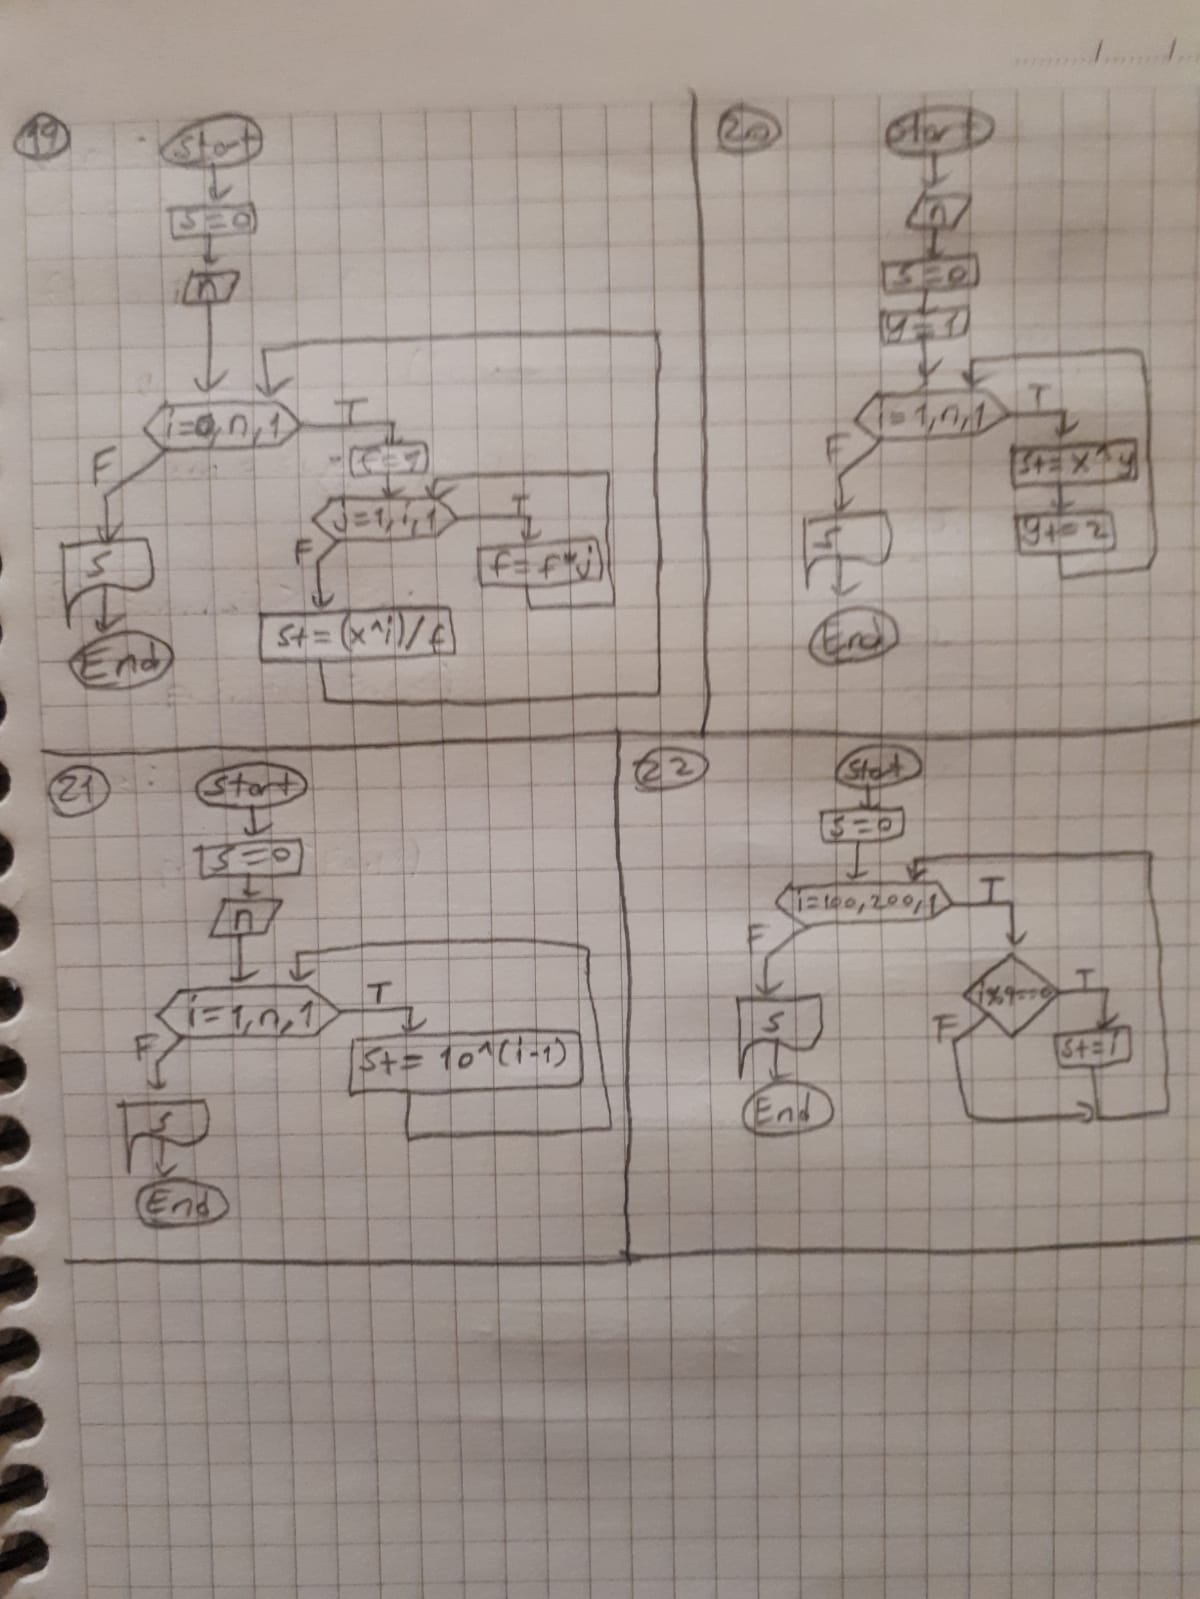 19
Start
S=0
n
i=0,n,1
T
F
f=1
j=1,i,1
T
F
f=f*j
S
S+=(x^i)/f
End
20
Start
n
S=0
y=1
i=1,n,1
T
F
S+=x^y
y+=2
S
End
21
Start
S=0
n
i=1,n,1
T
F
S+=10^(i-1)
S
End
22
Start
S=0
i=100,200,1
T
F
T
F
S+=i
S
End